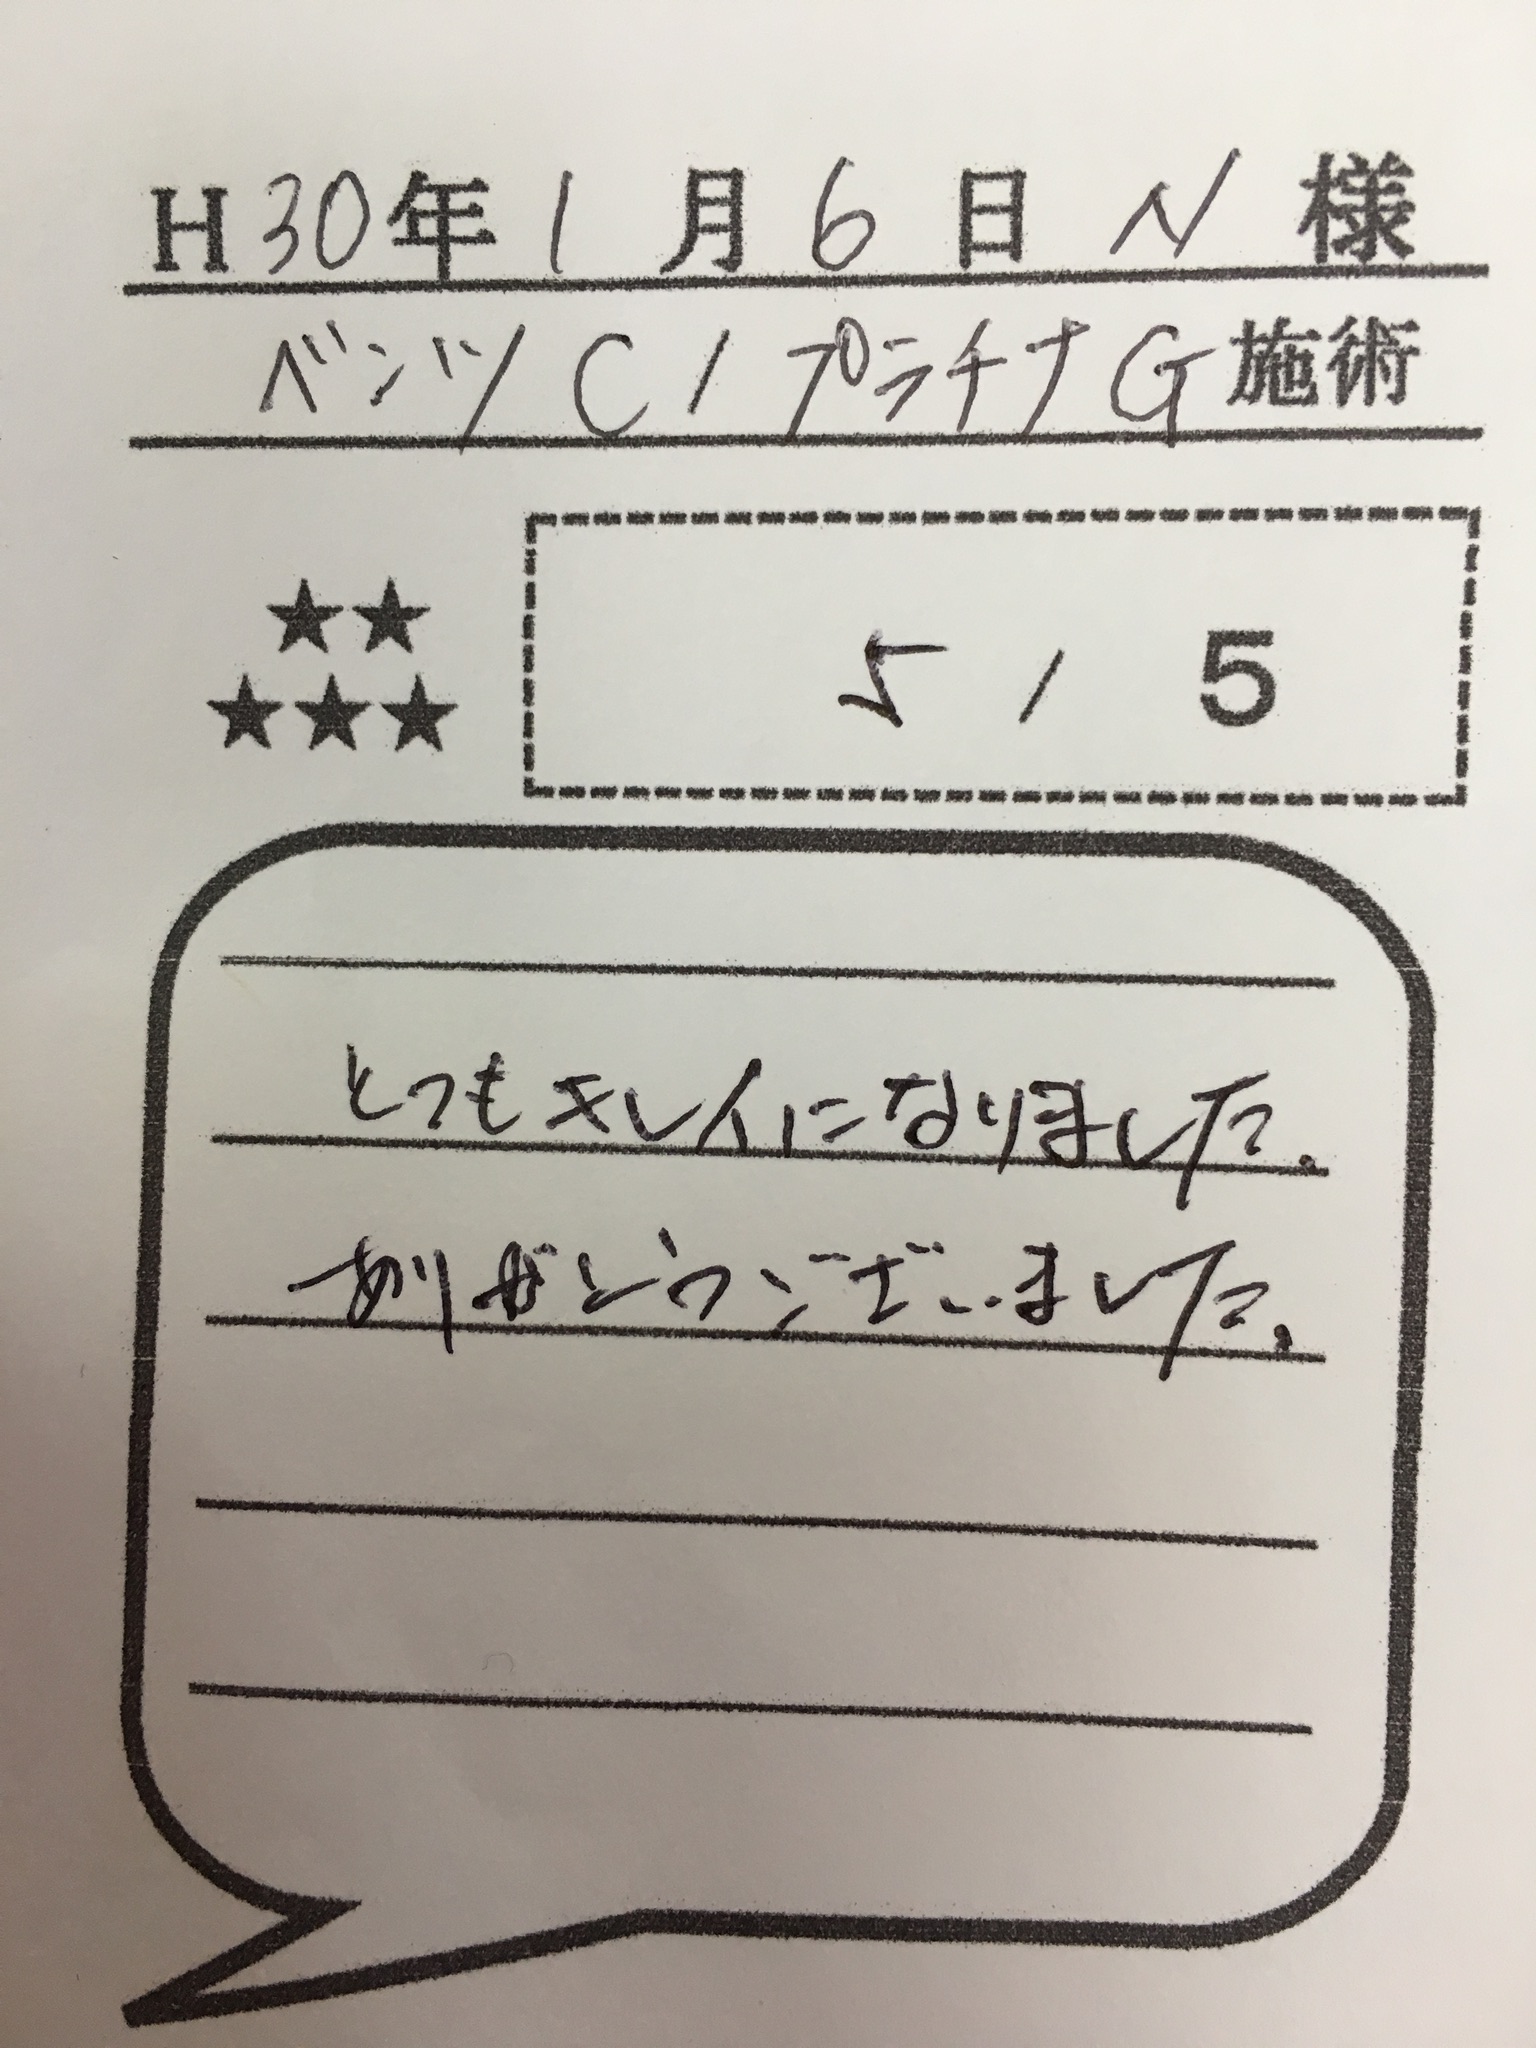 H30年1月6日 N 様
ベンツ C / プラチナG 施術
★★
★★★
5 / 5
とってもキレイになりました。
ありがとうございました。